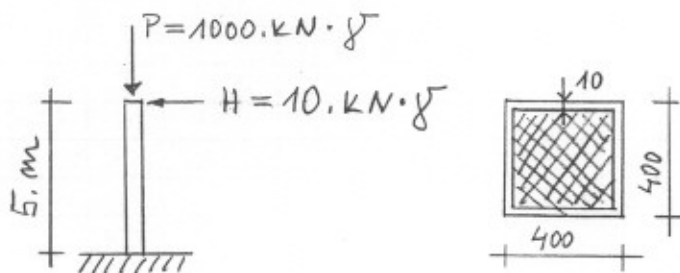 P=1000.kN·γ
H=10.kN·γ
5.m
10
400
400